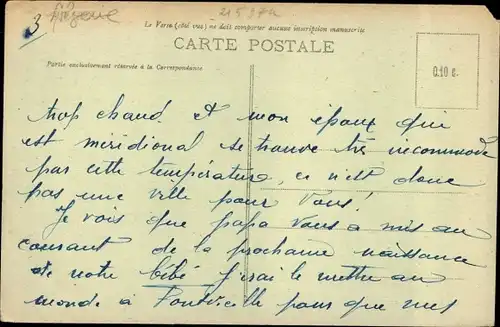 3
Le Verso (côté vue) ne doit comporter aucune inscription manuscrite
CARTE POSTALE
Partie exclusivement réservée à la Correspondance
0.10 c.
trop chaud et mon époux qui
est méridional se trouve très incommodé
par cette température, ce n'est donc
pas une ville pour vous!
Je vois que papa vous a mis au
courant de la prochaine naissance
de notre bébé j'irai le mettre au
monde à Fontvieille pour que mes